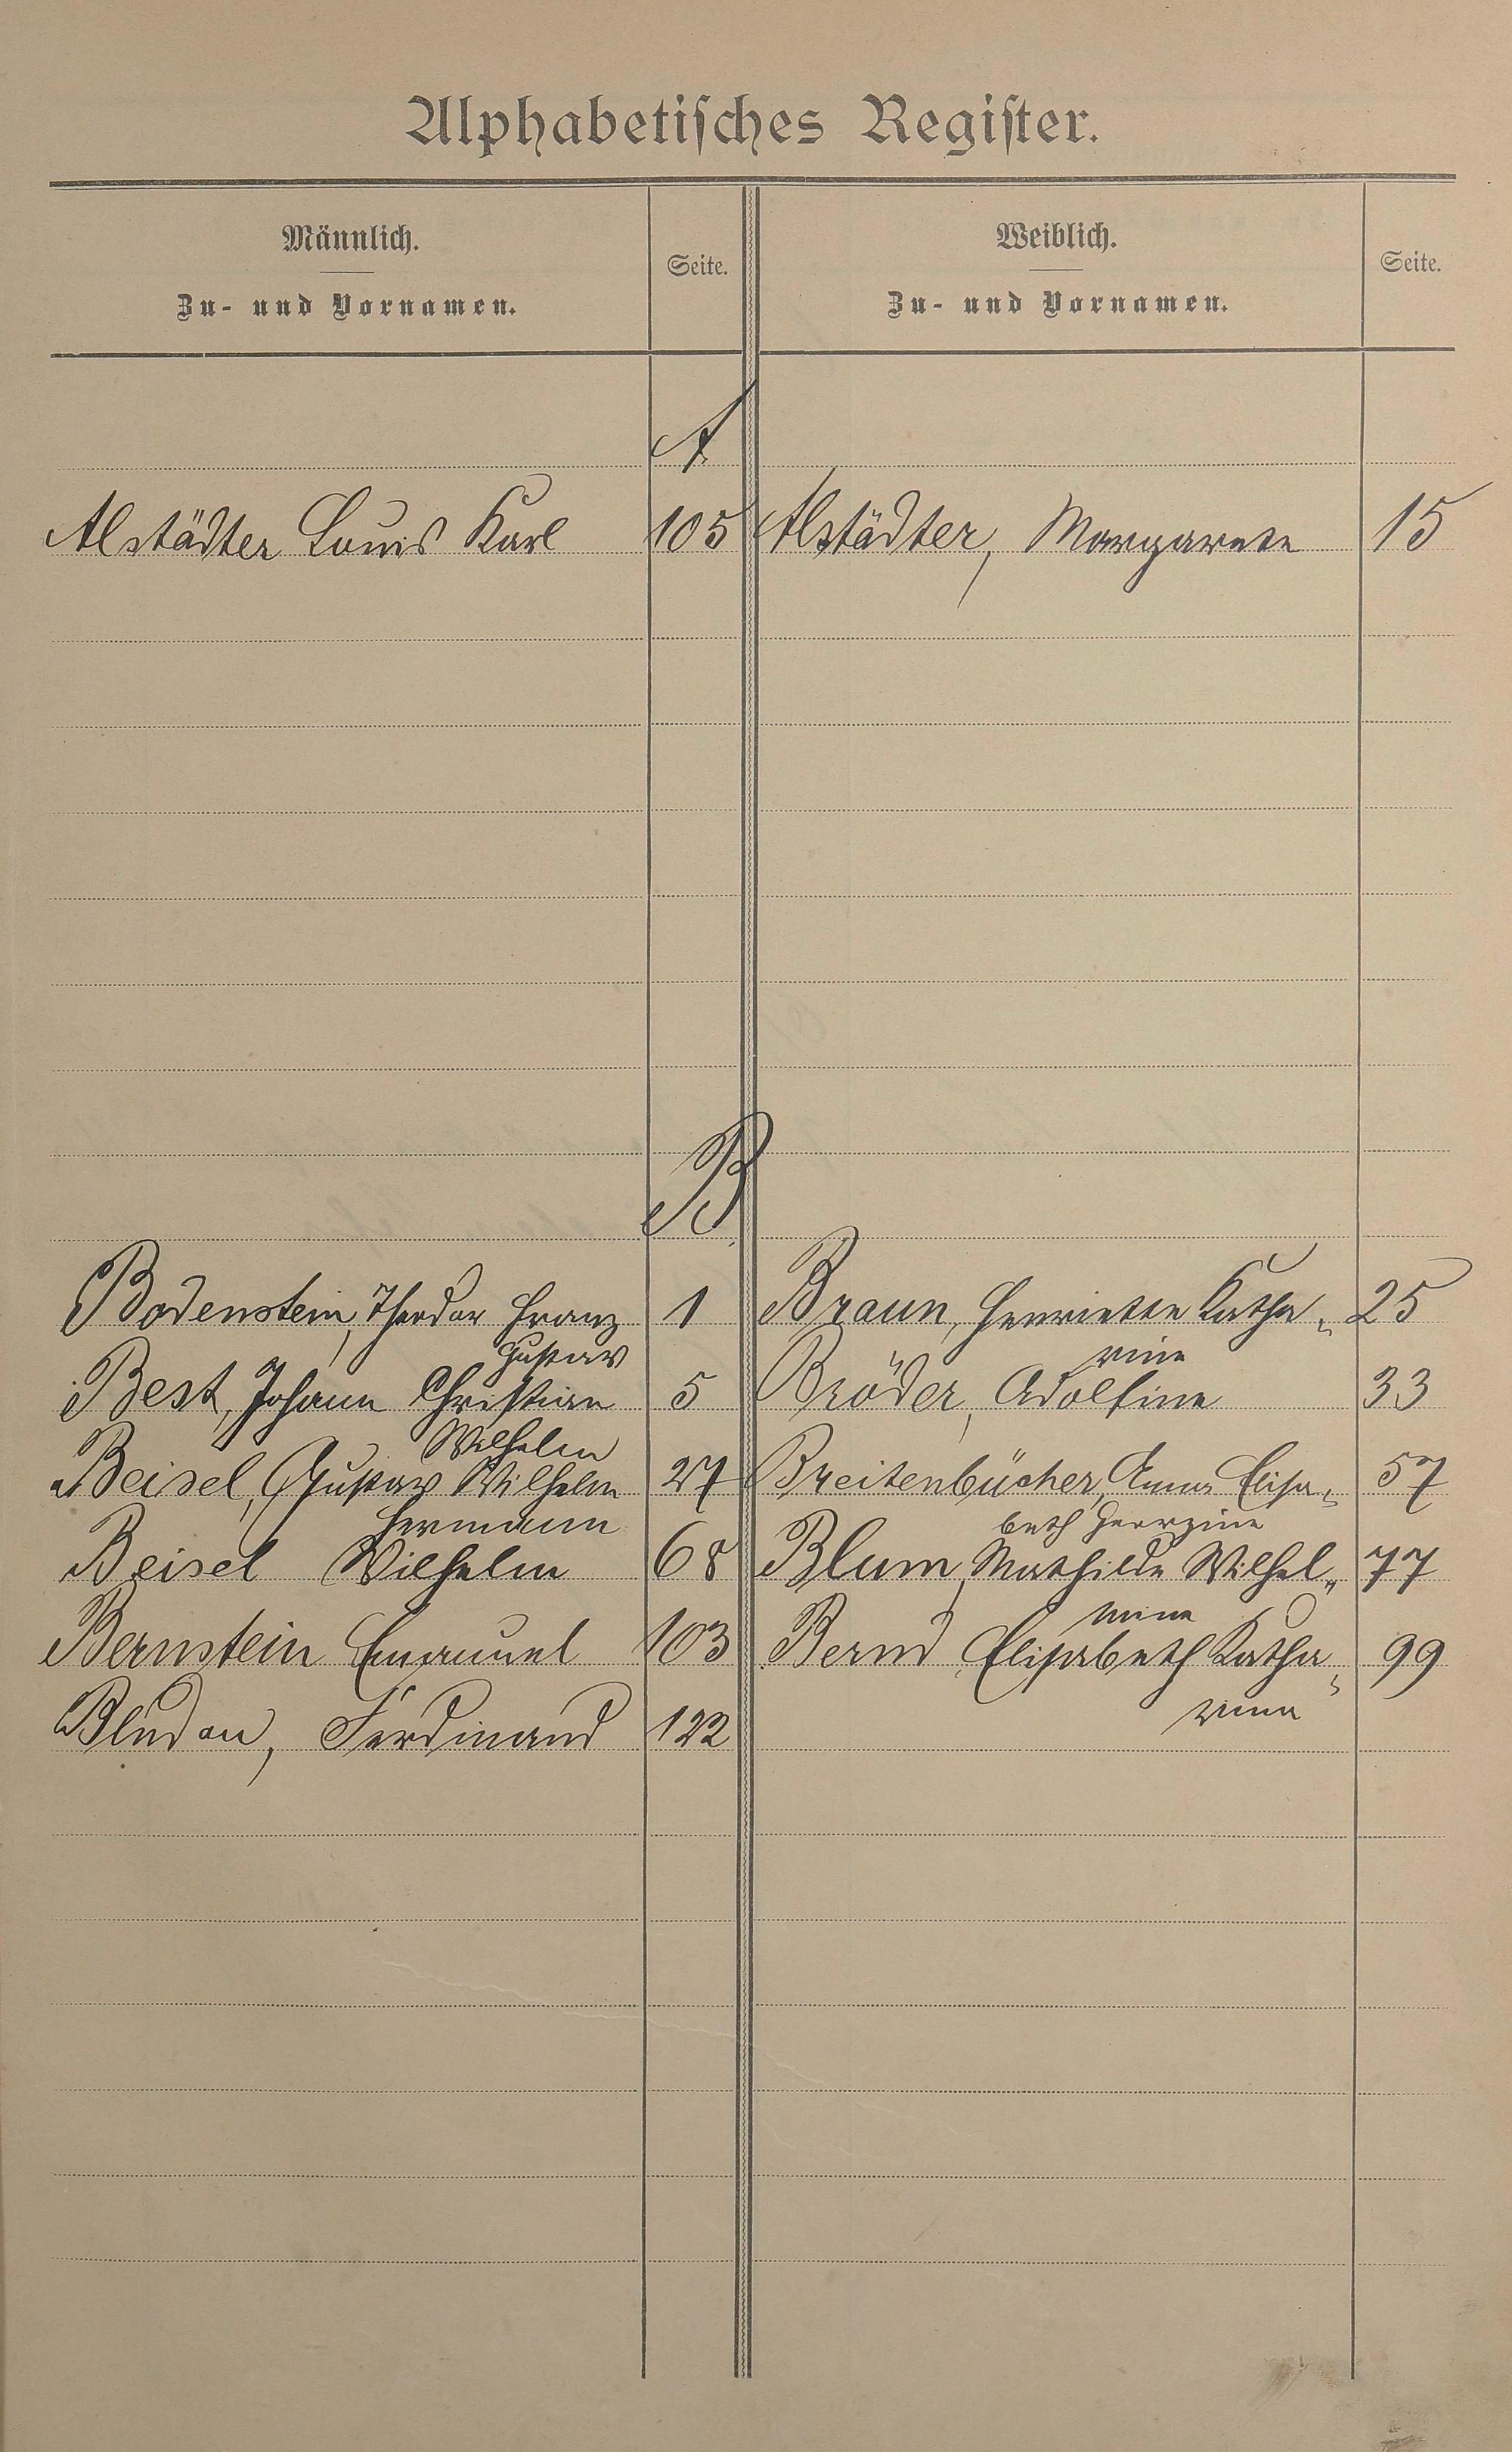 Alphabetisches Register.
Männlich.
Zu- und Vornamen.
Seite.
Weiblich.
Zu- und Vornamen.
Seite.
A
Alstädter Louis Karl 105 Alstädter, Margarete 15
B
Bodenstein, Theodor Franz 1 Braun, Henriette Katha- 25
Gustav rine
Best, Johann Christian 5 Bröder, Adolfine 33
Wilhelm
Beisel, Gustav Wilhelm 27 Breitenbücher, Anna Elisa- 57
Hermann beth Georgine
Beisel Wilhelm 68 Blum, Mathilde Wilhel- 77
mine
Bernstein Emanuel 103 Bernd, Elisabeth Katha- 99
rina
Bludau, Ferdinand 122